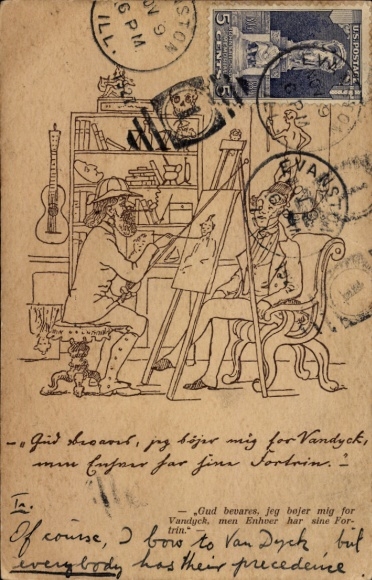 EVANSTON
NOV 9
6 PM
ILL.
U.S. POSTAGE
5 CENTS 5
EVANSTON
— „Gud bevares, jeg bøjer mig for Vandyck,
men Enhver har sine Fortrin." —
— „Gud bevares, jeg bøjer mig for
Vandyck, men Enhver har sine For-
trin." —
Of course, I bow to Van Dyck but
everybody has their precedence